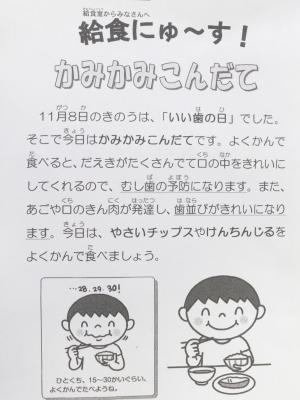 給食室からみなさんへ
給食にゅ～す！
かみかみこんだて
11月8日のきのうは、「いい歯の日」でした。
そこで今日はかみかみこんだてです。よくかんで
食べると、だえきがたくさんでて口の中をきれいに
してくれるので、むし歯の予防になります。また、
あごや口のきん肉が発達し、歯並びがきれいになり
ます。今日は、やさいチップスやけんちんじるを
よくかんで食べましょう。
…28．29．30！
ひとくち、15～30かいぐらい、
よくかんでたべようね。